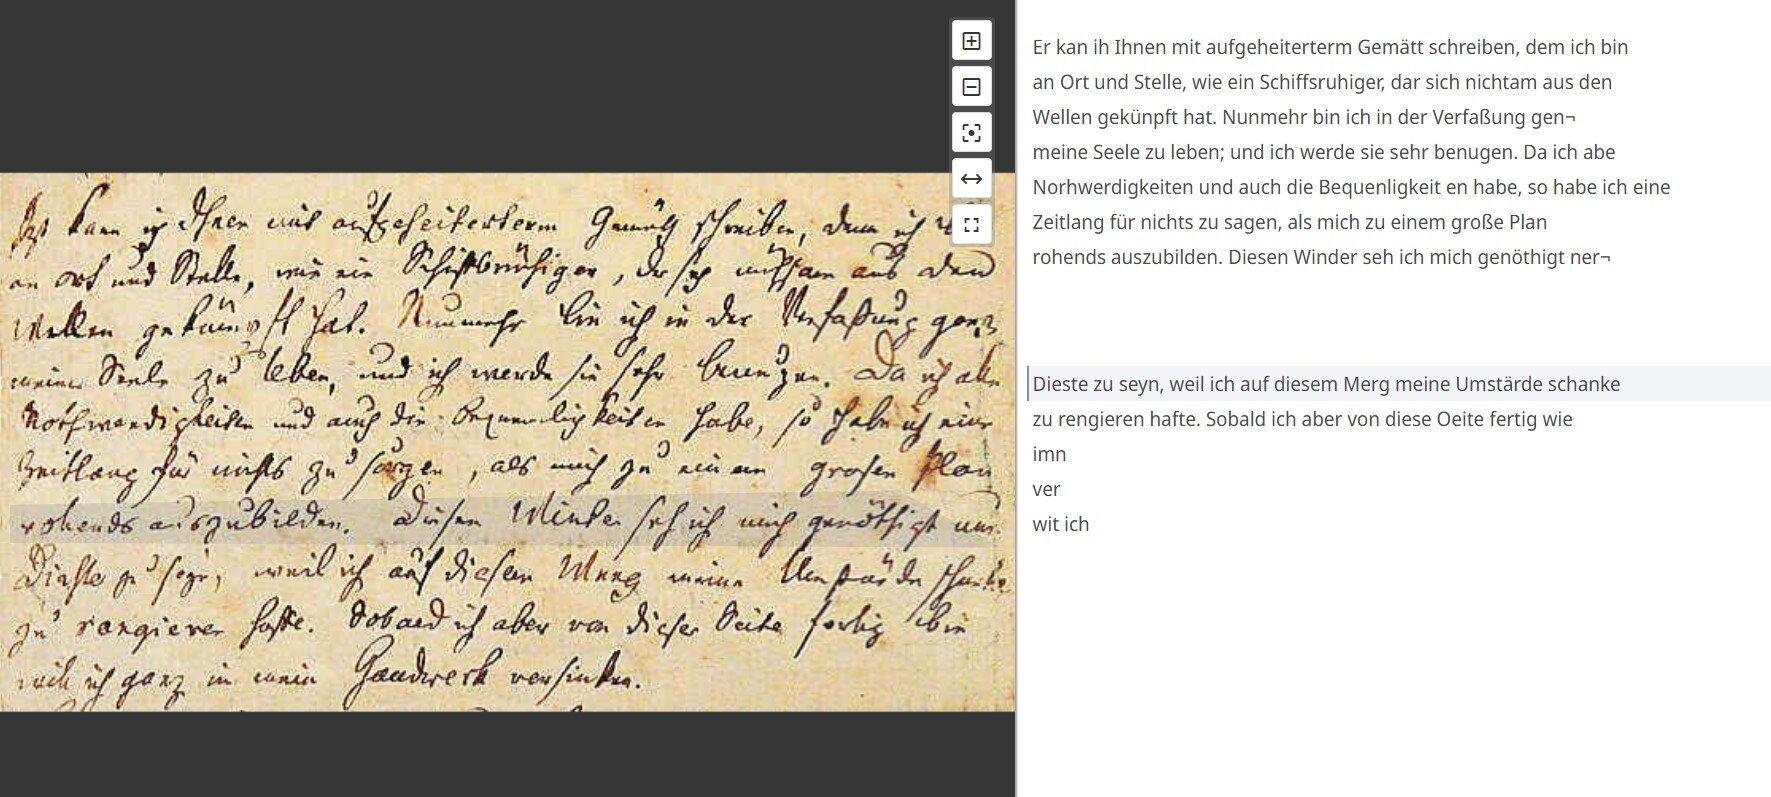 Izt kann ich Ihnen mit aufgeheiterterm Gemüth schreiben, denn ich
an Ort und Stelle, wie ein Schiffbrüchiger, der sich mühsam aus den
Wellen gekämpft hat. Nunmehr bin ich in der Verfaßung ganz
meiner Seele zu leben, und ich werde sie sehr benuzen. Da ich alle
Nothwendigkeiten und auch die Bequemlichkeiten habe, so habe ich eine
Zeitlang für nichts zu sorgen, als mich zu einem grosen Plan
vollends auszubilden. Diesen Winter seh ich mich genöthigt nur
Dichter zu seyn, weil ich auf diesem Weeg meine Umstände
zu rangieren hoffe. Sobald ich aber von dieser Seite fertig bin
will ich ganz in mein Handwerk versinken.
Er kan ih Ihnen mit aufgeheiterterm Gemätt schreiben, dem ich bin
an Ort und Stelle, wie ein Schiffsruhiger, dar sich nichtam aus den
Wellen gekünpft hat. Nunmehr bin ich in der Verfaßung gen¬
meine Seele zu leben; und ich werde sie sehr benugen. Da ich abe
Norhwerdigkeiten und auch die Bequenligkeit en habe, so habe ich eine
Zeitlang für nichts zu sagen, als mich zu einem große Plan
rohends auszubilden. Diesen Winder seh ich mich genöthigt ner¬
Dieste zu seyn, weil ich auf diesem Merg meine Umstärde schanke
zu rengieren hafte. Sobald ich aber von diese Oeite fertig wie
imn
ver
wit ich